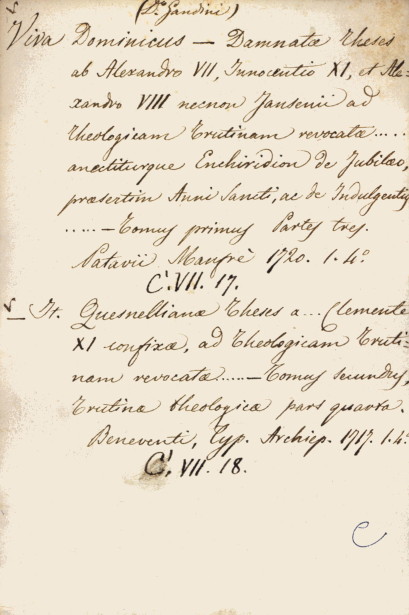 (Dn Gandini)
Viva Dominicus — Damnatæ theses
ab Alexandro VII, Innocentio XI, et Ale-
xandro VIII necnon Jansenii ad
theologicam trutinam revocatæ.....
anectiturque Enchiridion de Jubilæo,
præsertim Anni Sancti, ac de Indulgentiis
.....—Tomus primus Partes tres.
Patavii Manfrè 1720. 1. 4.º
C'. VII. 17.
— It. Quesnellianæ theses a... Clemente
XI confixæ, ad Theologicam Truti-
nam revocatæ.....—Tomus secundus,
Trutinæ theologicæ pars quarta.
Beneventi, Typ. Archiep. 1717. 1. 4.º
C'. VII. 18.